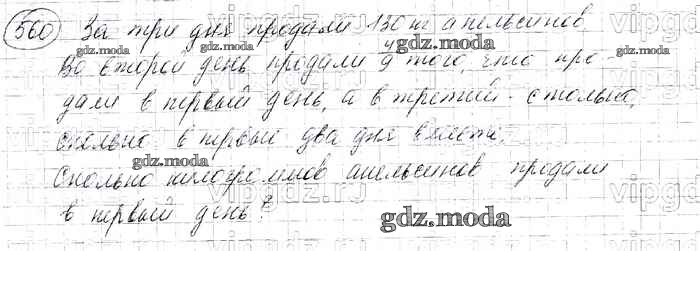 560 За три дня продали 130 кг апельсинов.
Во второй день продали 4/9 того, что про-
дали в первый день, а в третий - столько,
сколько в первые два дня вместе.
Сколько килограммов апельсинов продали
в первый день?
gdz.moda
gdz.moda
gdz.moda
gdz.moda
gdz.moda
gdz.moda